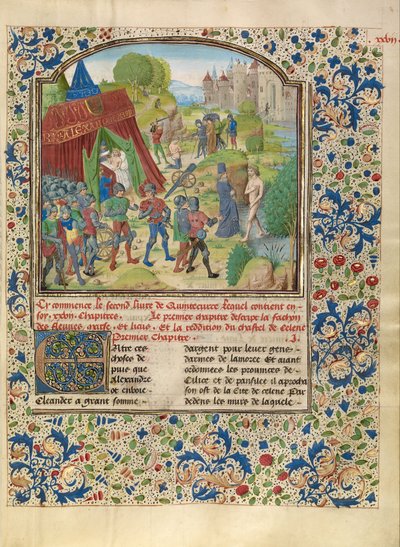 xxvii
Cy commence le second livre de Quintecurce lequel contient en
soy. xxvii. Chapitres. Le premier chapitre descript la fachon
des fleuves, marse, Et licus. Et la reddition du chastel de celene
Premier Chapitre. .I.
Ultre ces
choses de
puis que
Alexandre
ot envoie
Cleander a grant somme
dargent pour lever gens
darmes de la moree Et avant
ordonnees les provinces de
Cilice et de panfilie il aprocha
son ost de la Cite de celene Par
dedens les murs de laquele